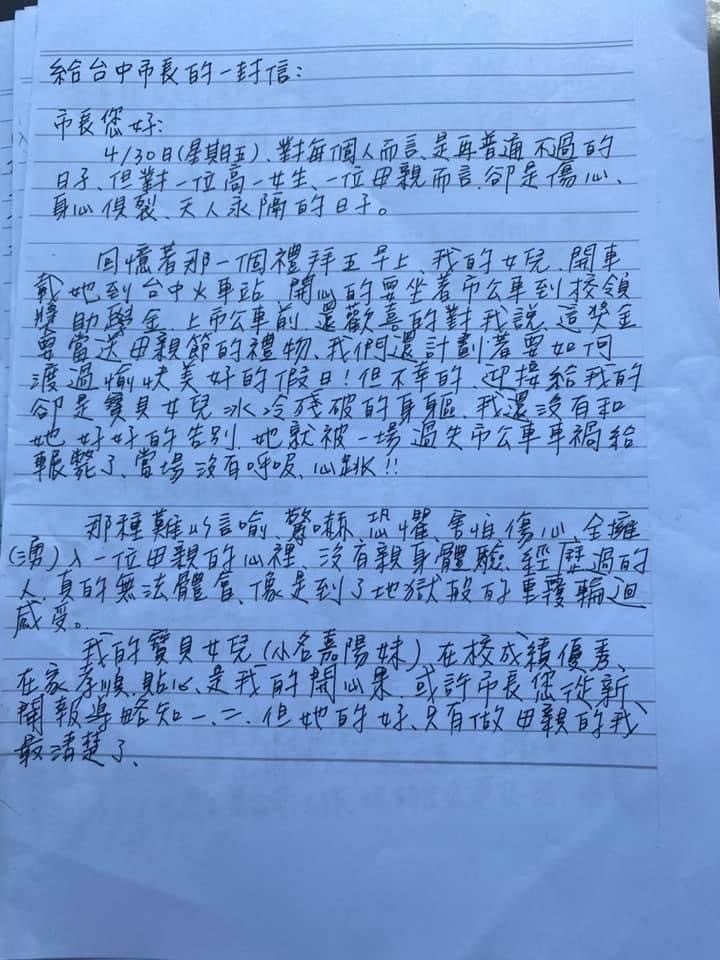 給台中市長的一封信:
市長您好:
4/30日(星期五)、對每個人而言、是再普通不過的
日子、但對一位高一女生、一位母親而言、卻是傷心、
身心俱裂、天人永隔的日子。
回憶著那一個禮拜五早上、我的女兒、開車
載她到台中火車站、開心的要坐著市公車到校領
獎助學金、上市公車前、還歡喜的對我說、這獎金
要當送母親節的禮物、我們還計劃著要如何
渡過愉快美好的假日!但不幸的、迎接給我的
卻是寶貝女兒冰冷殘破的身軀、我還沒有和
她好好的告別、她就被一場過失市公車車禍給
輾斃了、當場沒有呼吸、心跳!!
那種難以言喻、驚嚇、恐懼、害怕傷心、全擁
(湧)入一位母親的心裡、沒有親身體驗、經歷過的
人、真的無法體會、像是到了地獄般的重覆輪迴
感受。
我的寶貝女兒(小名嘉陽妹)、在校成績優秀、
在家孝順、貼心、是我的開心果、或許市長您從新
聞報導略知一、二、但她的好、只有做母親的我、
最清楚了、